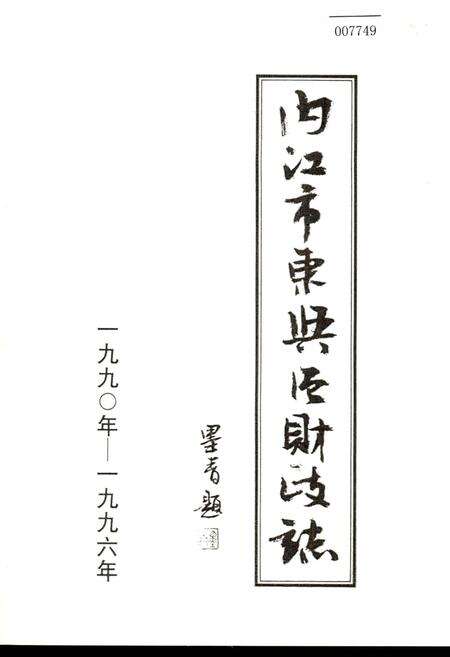 007749
内江市東興区財政誌
墨青題
一九九〇年—一九九六年